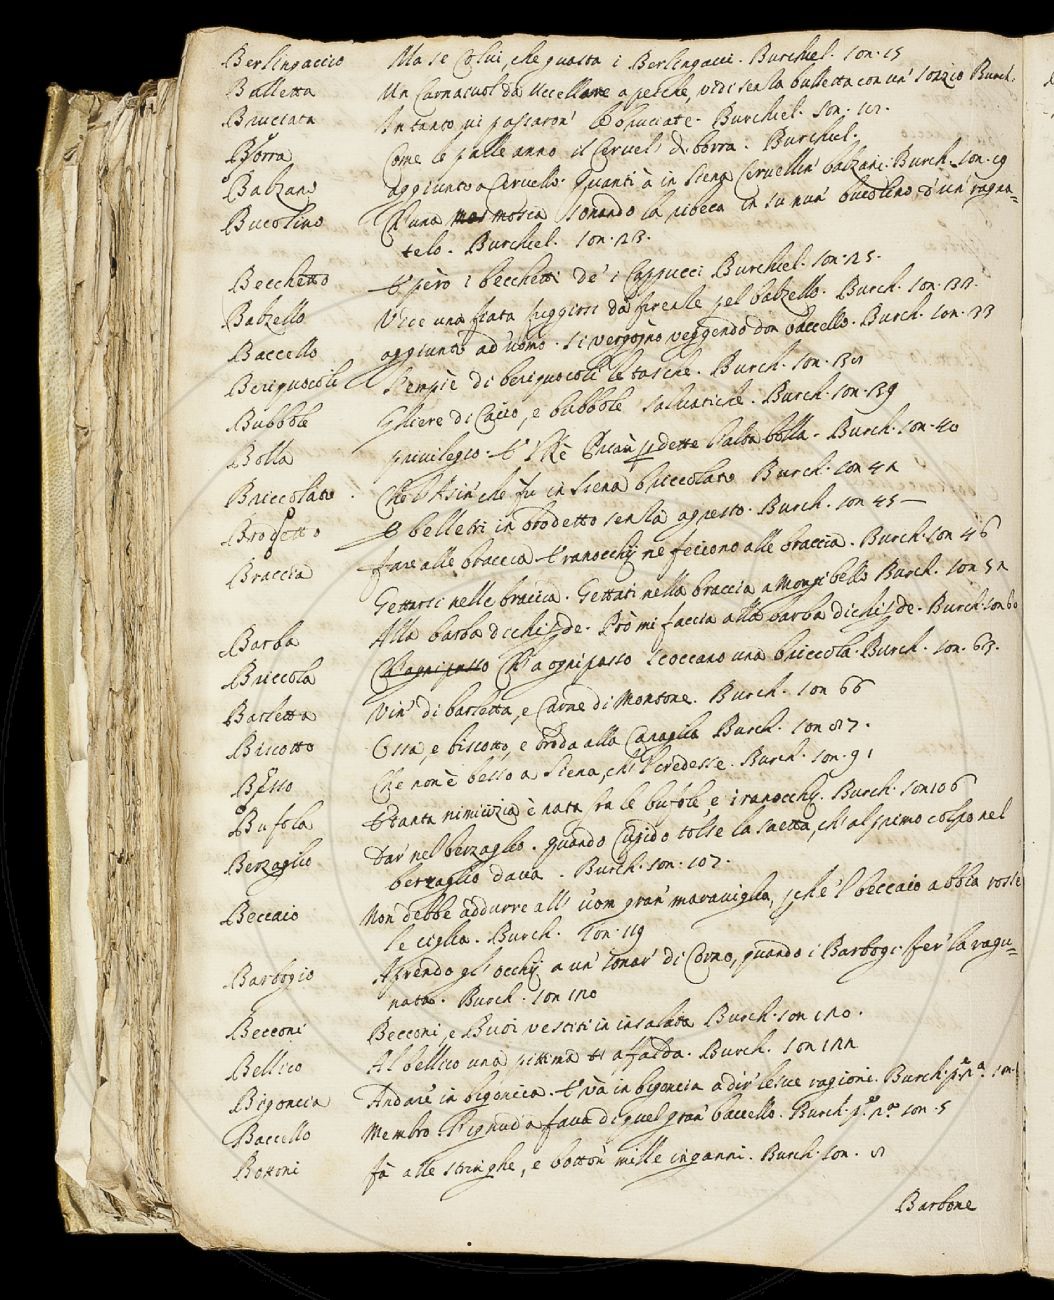 Berlingaccio Ma se Colui, che guasta i Berlingacci. Burchiel. son. 15
Balletta Un Carnacuol da uccellare a pesche, vidi senza bulletta con un' sonzio Burch.
Bruciata Intanto vi passaron' le bruciate. Burchiel. son.
Borra Come le palle anno il Cervel' di borra. Burchiel.
Balzano aggiunto a Cervello. Quanti à in Siena Cervellin' balzani. Burch. son. 19
Bucolino Ch'una mosca sonando la ribeca in su nun' bucolino d'un' ragna=
telo. Burchiel. son. 23.
Becchetto E però i becchetti de' i Cappucci Burchiel. son. 25.
Balzello Vide una fiata fuggirsi da firenze pel balzello. Burch. son.
Baccello aggiunto ad'uomo. si vergognò veggendo don baccello. Burch. son. 33
Beriquocole S'empiè di beriquocoli le tasche. Burch. son. 38
Bubbole Ghiere di Cacio, e bubbole salvatiche. Burch. son. 39
Bolla privilegio. E'l Rè Chicar' dette l'alba bolla. Burch. son. 40
Briccolato. Che l'Asin' che fù in Siena briccolato Burch. son 42
Brodetto E belletri in brodetto senza agresto. Burch. son 45
Braccia fare alle braccia E ranocchij ne feciono alle braccia. Burch. son 46
Gettarsi nelle braccia. Gettati nella braccia a Mongibello Burch. son 52
Barba Alla barba di chi pde. Prò mi faccia alla barba di chi pde. Burch. son 60
Briccola Ch'a ogni passo Ch'a ogni passo scoccano una briccola. Burch. son. 63.
Barletta Vin' di barletta, e Carne di Montone. Burch. son 66
Biscotto Ossa, e biscotto, e broda alla Canaglia Burch. son 87.
Besso Che non è besso a Siena, ch'il credesse. Burch. son. 91
Bufola E tanta nimicizia è nata fra le bufole, e i ranocchij. Burch. son 106
Berzaglio Dar' nel berzaglio. quando Cupido tolse la saetta, ch' al primo colpo nel
berzaglio dava. Burch. son. 107.
Beccaio Non debbe addurre all' uom gran' maraviglia, pche'l beccaio abbia rosse
le ciglia. Burch. son. 119
Barbogio Aprendo gl'occhij a un' sonar' di Corno, quando i Barbogi fer' la ragu=
nata. Burch. son 120
Becconi Becconi, e Buoi vestiti in insalata Burch. son 120.
Bellico Al bellico una pittima ti affalda. Burch. son 122
Bigoncia Andare in bigoncia. E và in bigoncia a dir' le sue ragioni. Burch. son.
Baccello Membro. Pignuda fava di quel gran' baccello. Burch. son. 5
Bottoni fà alle stringhe, e botton' mille inganni. Burch. son. 8
Barbone